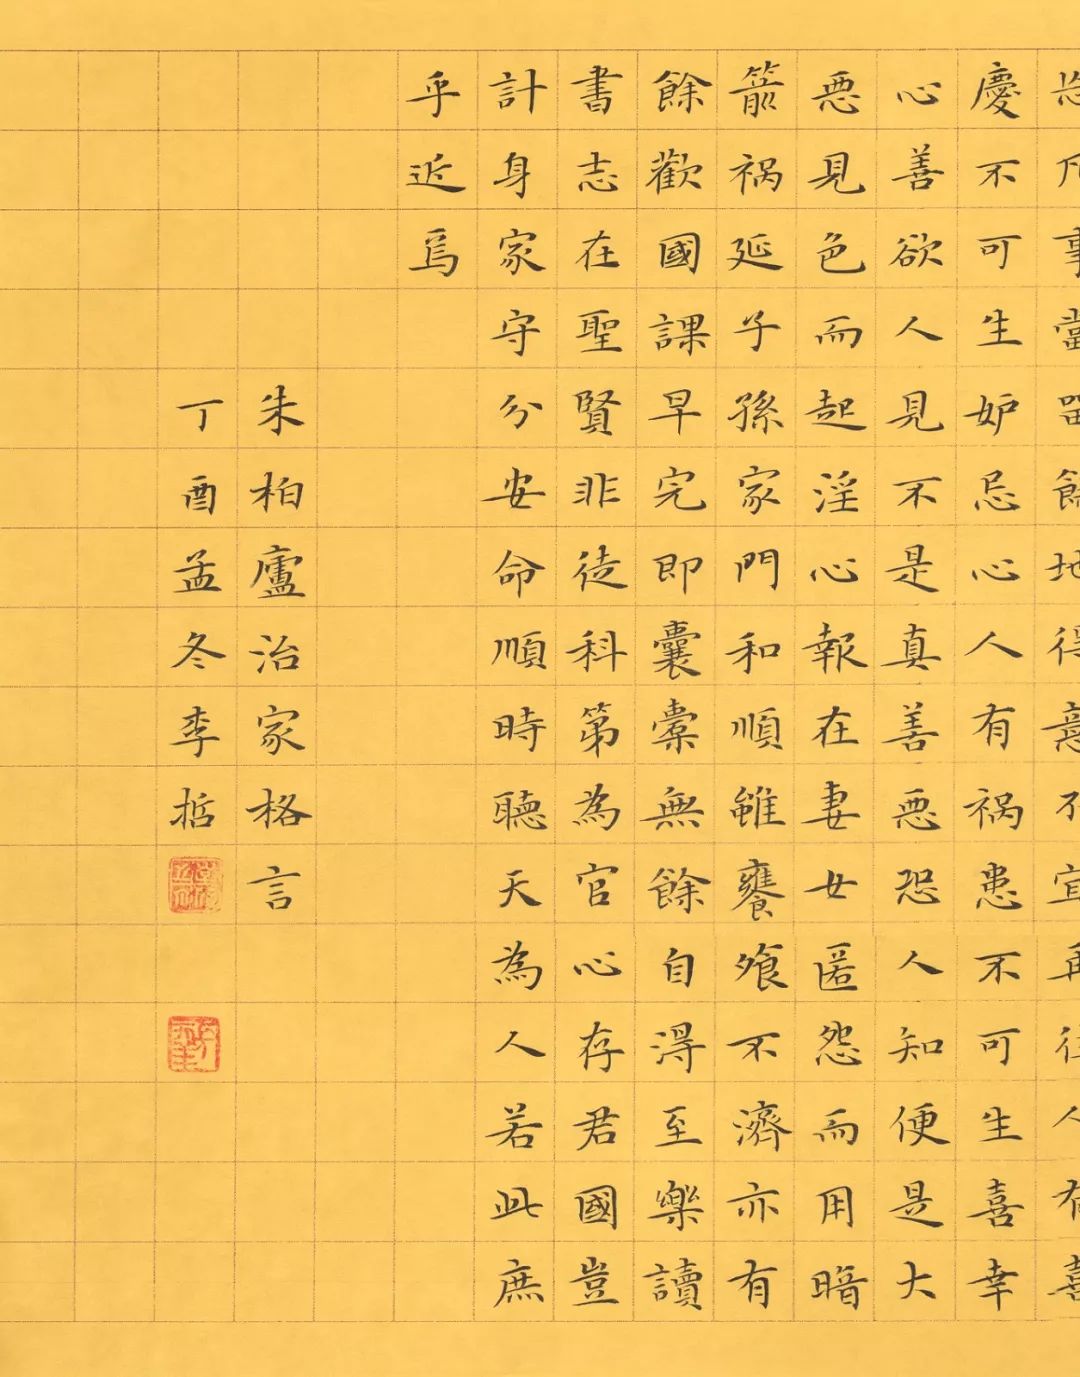 恐凡事當留餘地得意不宜再往人有喜
慶不可生妒忌心人有禍患不可生喜幸
心善欲人見不是真善惡恐人知便是大
惡見色而起淫心報在妻女匿怨而用暗
箭禍延子孫家門和順雖饔飧不濟亦有
餘歡國課早完即囊橐無餘自得至樂讀
書志在聖賢非徒科第為官心存君國豈
計身家守分安命順時聽天為人若此庶
乎近焉
朱柏廬治家格言
丁酉孟冬李哲